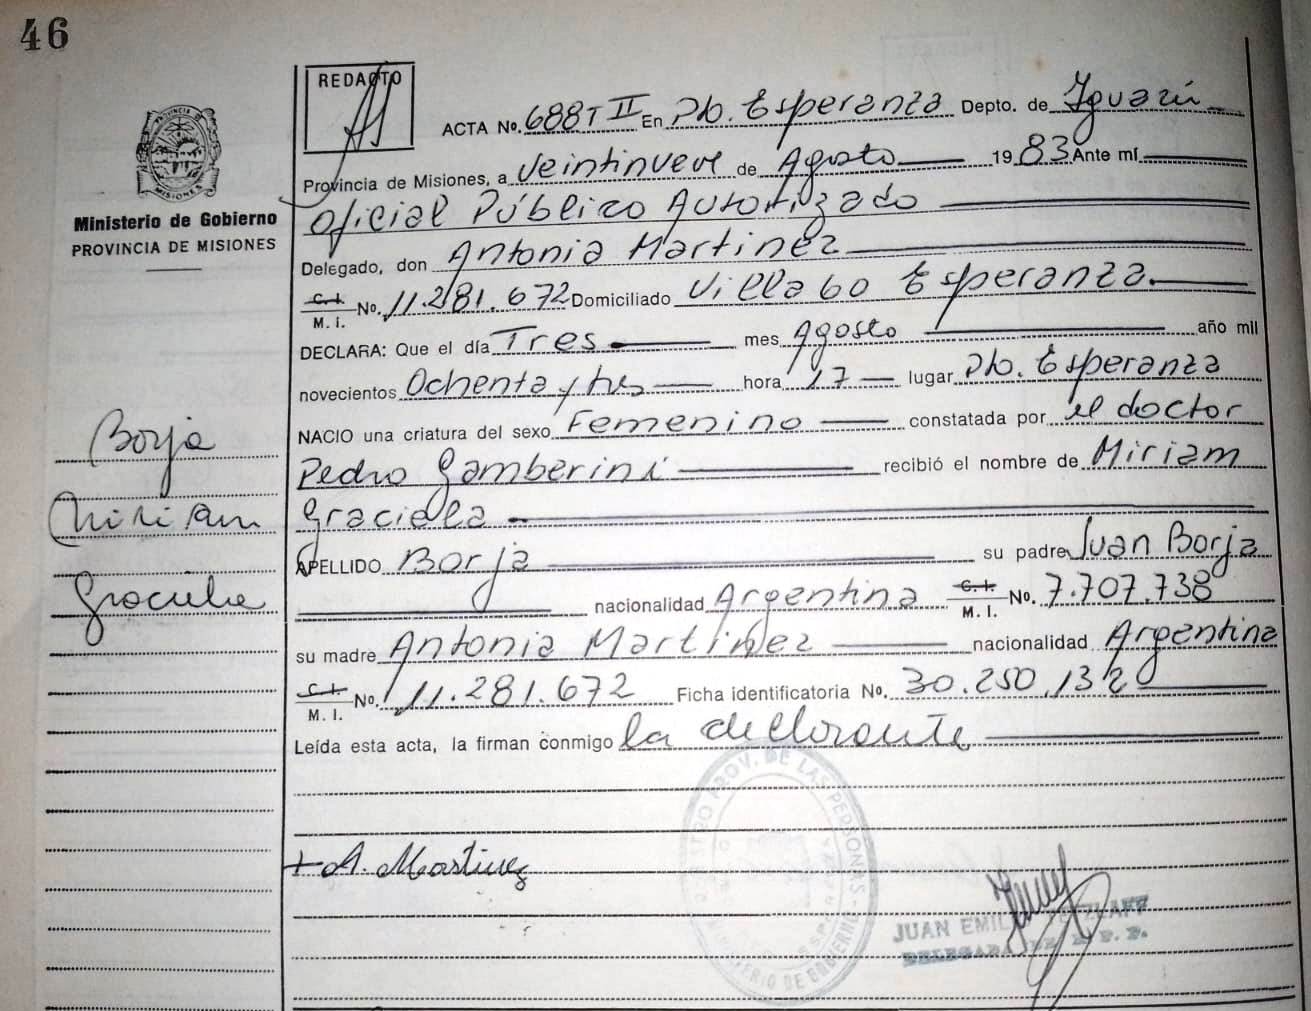 46
REDACTO
ACTA Nº. 688 T II En Pto. Esperanza Depto. de Iguazú
Provincia de Misiones, a veintinueve de Agosto 1983 Ante mí
Oficial Público Autorizado
Delegado, don Antonia Martinez
C. I. M. I. No. 11.281.672 Domiciliado Villa 60 Esperanza.
DECLARA: Que el día Tres mes Agosto año mil
novecientos Ochenta y tres hora 17 lugar Pto. Esperanza
NACIO una criatura del sexo Femenino constatada por el doctor
Pedro Gamberini recibió el nombre de Miriam
Graciela
APELLIDO Borja su padre Juan Borja
nacionalidad Argentina C. I. M. I. No. 7.707.738
su madre Antonia Martinez nacionalidad Argentina
C. I. M. I. No. 11.281.672 Ficha identificatoria No. 30.250.132
Leída esta acta, la firman conmigo la declarante
+ A. Martinez
PROVINCIA DE MISIONES
Ministerio de Gobierno
PROVINCIA DE MISIONES
Borja
Miriam
Graciela
PROV. DE LAS PERSONAS
MINISTERIO DE GOBIERNO
JUAN EMIL